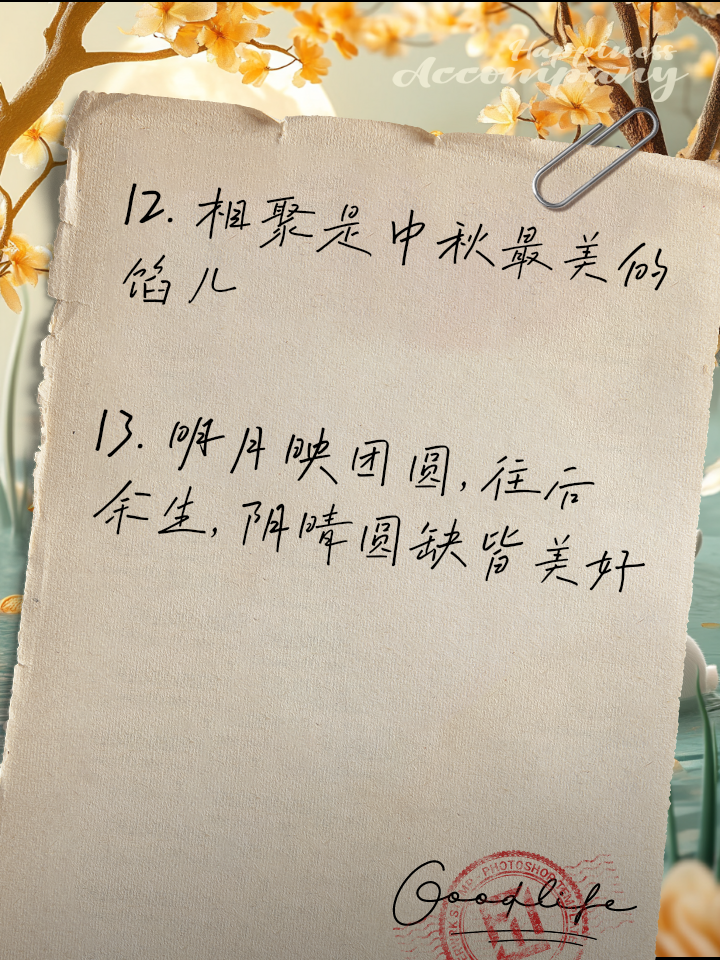 Happiness
Accompany
12. 相聚是中秋最美的
馅儿
13. 明月映团圆,往后
余生,阴晴圆缺皆美好
Goodlife